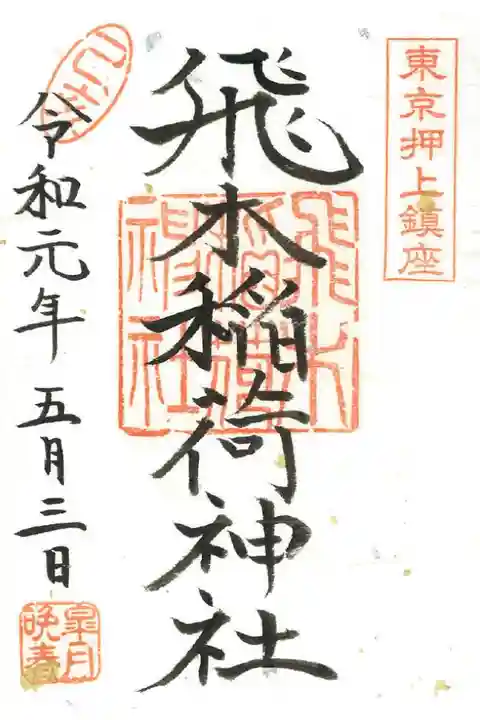 東京押上鎮座
飛木稲荷神社
飛木
稲荷
神社
令和元年五月三日
皐月
晩春